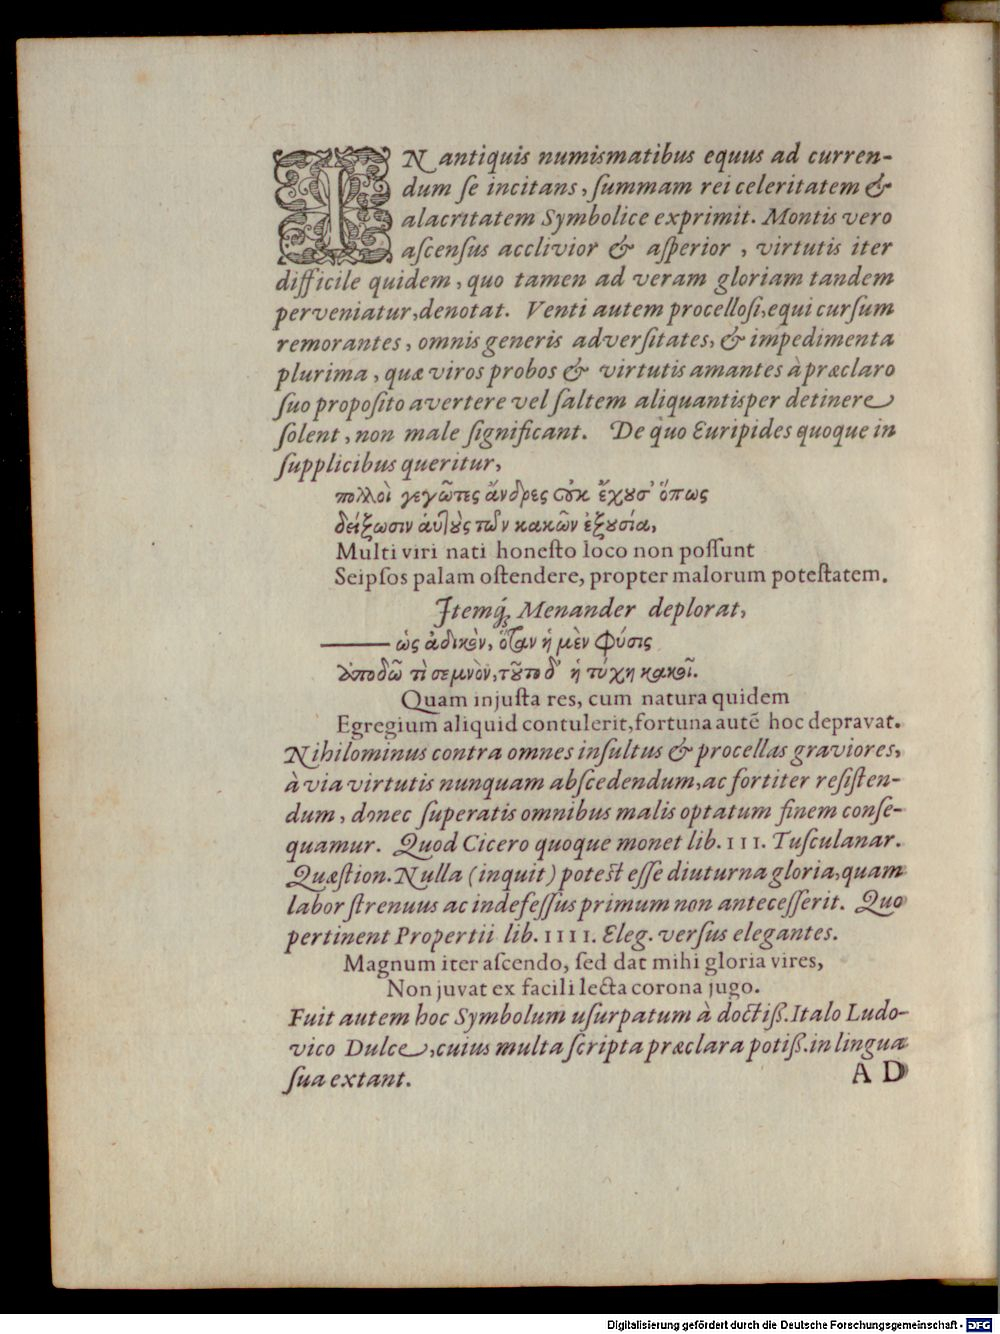 IN antiquis numismatibus equus ad curren-
dum ſe incitans, ſummam rei celeritatem &
alacritatem Symbolice exprimit. Montis vero
aſcenſus acclivior & aſperior, virtutis iter
difficile quidem, quo tamen ad veram gloriam tandem
perveniatur, denotat. Venti autem procelloſi, equi curſum
remorantes, omnis generis adverſitates, & impedimenta
plurima, quæ viros probos & virtutis amantes à præclaro
ſuo propoſito avertere vel ſaltem aliquantisper detinere
ſolent, non male ſignificant. De quo Euripides quoque in
ſupplicibus queritur,
πολλοὶ γεγῶτες ἄνδρες οὐκ ἔχουσ' ὅπως
δείξωσιν αὑτοὺς τῶν κακῶν ἐξουσία,
Multi viri nati honeſto loco non poſſunt
Seipſos palam oſtendere, propter malorum poteſtatem.
Itemq́ꝫ Menander deplorat,
——— ὡς ἄδικον, ὅταν ἡ μὲν φύσις
ἀποδῶ τὶ σεμνὸν, τοῦτο δ' ἡ τύχη κακοῖ.
Quam injuſta res, cum natura quidem
Egregium aliquid contulerit, fortuna autē hoc depravat.
Nihilominus contra omnes inſultus & procellas graviores,
à via virtutis nunquam abſcedendum, ac fortiter reſiſten-
dum, donec ſuperatis omnibus malis optatum finem conſe-
quamur. Quod Cicero quoque monet lib. III. Tuſculanar.
Quæſtion. Nulla (inquit) potest eſſe diuturna gloria, quam
labor ſtrenuus ac indefeſſus primum non anteceſſerit. Quo
pertinent Propertii lib. IIII. Eleg. verſus elegantes.
Magnum iter aſcendo, ſed dat mihi gloria vires,
Non juvat ex facili lecta corona jugo.
Fuit autem hoc Symbolum uſurpatum à doctiß. Italo Ludo-
vico Dulce, cuius multa ſcripta præclara potiß. in lingua
ſua extant.
A D
Digitalisierung gefördert durch die Deutsche Forschungsgemeinschaft - DFG